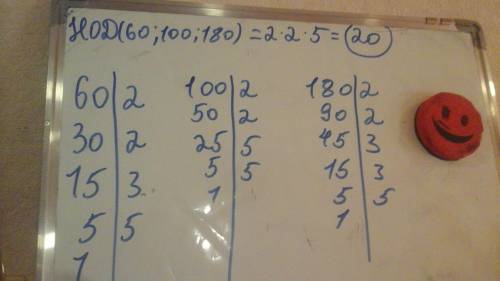 НОД(60;100;180) = 2·2·5 = 20
60 | 2
30 | 2
15 | 3
5 | 5
1
100 | 2
50 | 2
25 | 5
5 | 5
1
180 | 2
90 | 2
45 | 3
15 | 3
5 | 5
1